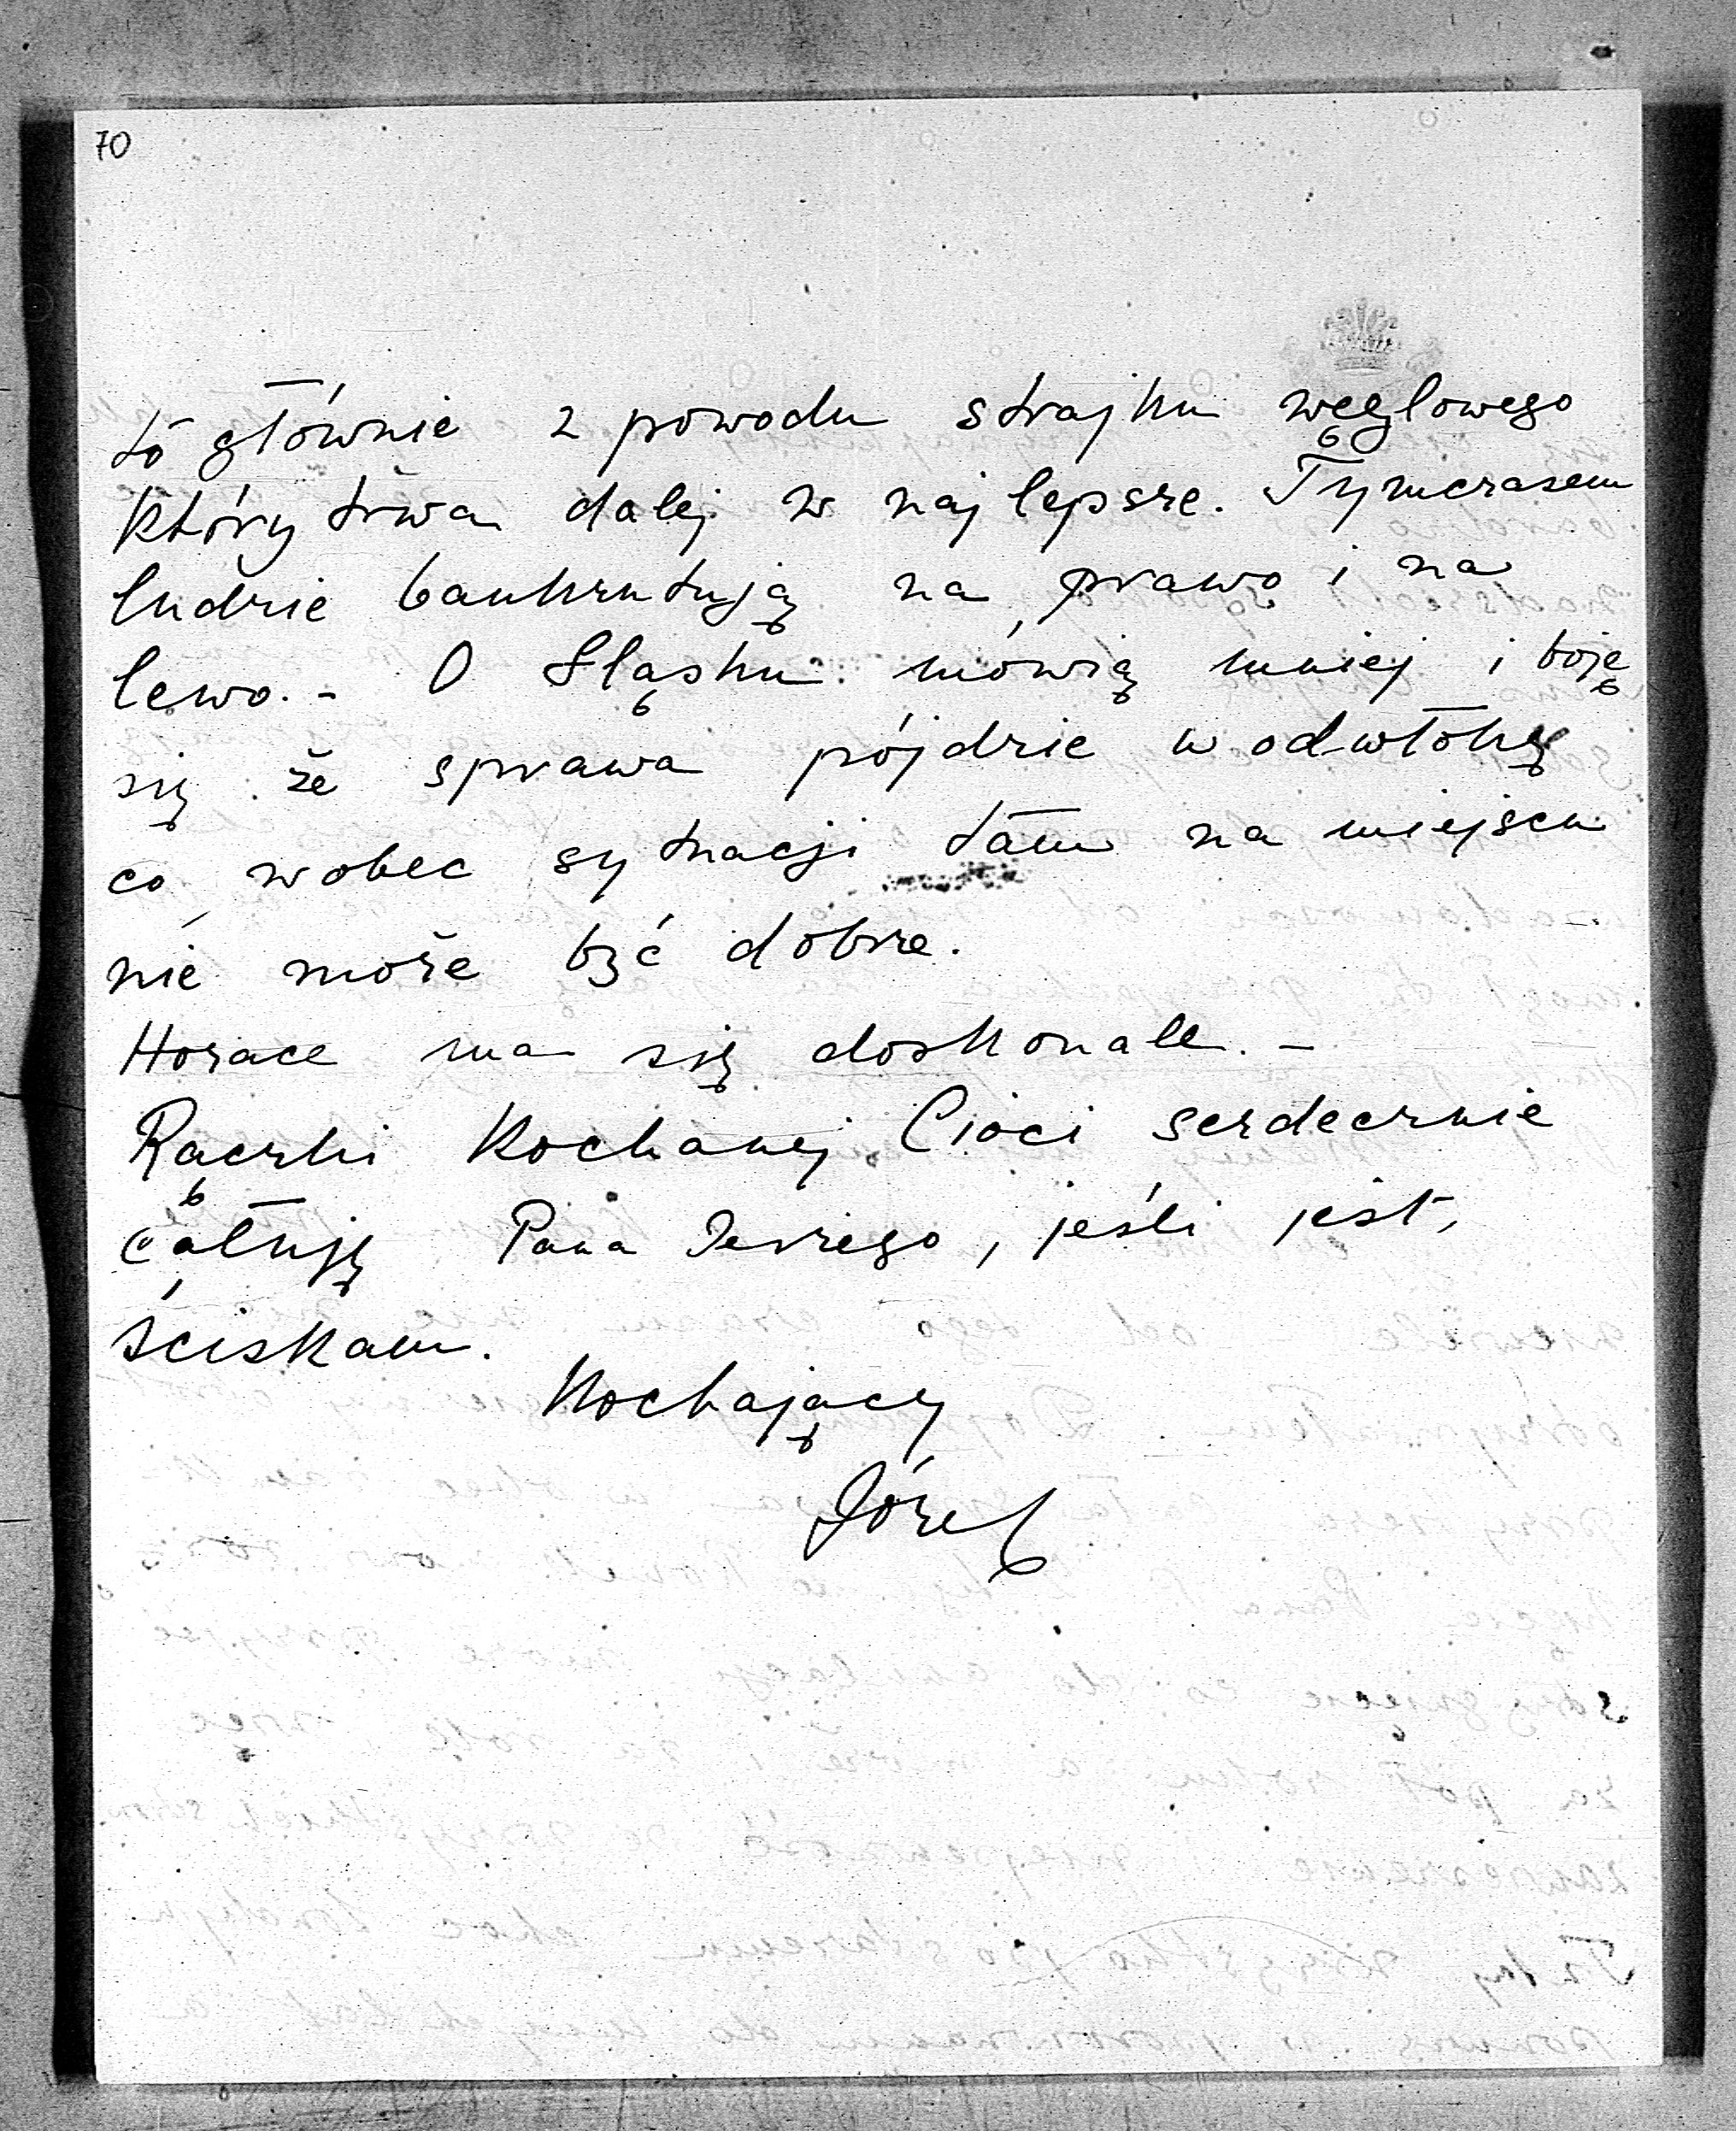 70
to głównie z powodu strajku węglowego
który trwa dalej w najlepsze. Tymczasem
ludzie bankrutują na prawo i na
lewo. - O Śląsku mówią mniej i boję
się że sprawa pójdzie w odwłokę
co wobec sytuacji tam na miejscu
nie może być dobrze.
Horace ma się doskonale. -
Rączki Kochanej Cioci serdecznie
całuję Pana Jerzego, jeśli jest,
ściskam.
Kochający
Józef